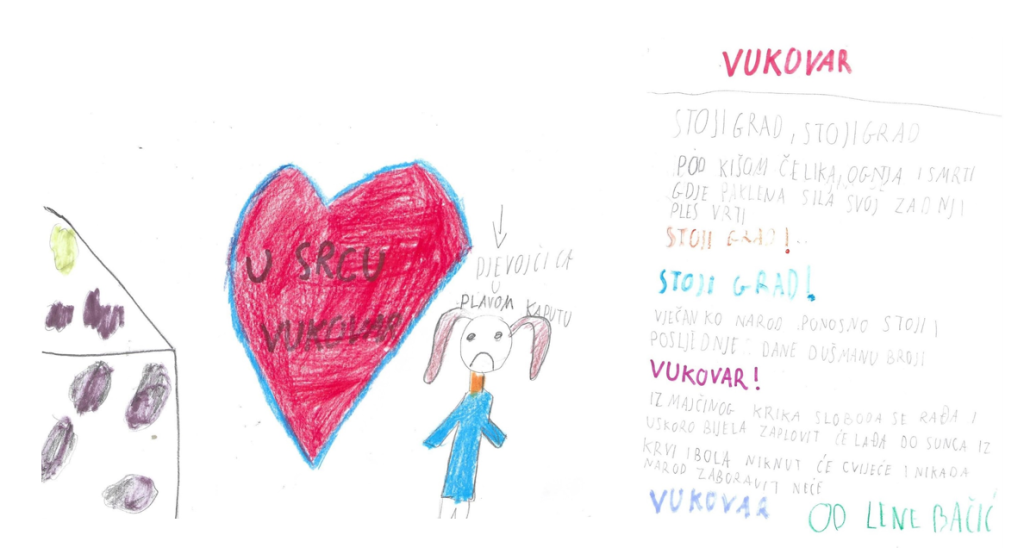 U SRCU
VUKOVAR
DJEVOJČICA
U
PLAVOM KAPUTU
VUKOVAR
STOJI GRAD, STOJI GRAD
POD KIŠOM ČELIKA, OGNJA I SMRTI
GDJE PAKLENA SILA SVOJ ZADNJI
PLES VRTI
STOJI GRAD!..
STOJI GRAD!
VJEČAN KO NAROD PONOSNO STOJI I
POSLJEDNJE DANE DUŠMANU BROJI
VUKOVAR!
IZ MAJČINOG KRIKA SLOBODA SE RAĐA I
USKORO BIJELA ZAPLOVIT ĆE LAĐA DO SUNCA IZ
KRVI I BOLA NIKNUT ĆE CVIJEĆE I NIKADA
NAROD ZABORAVIT NEĆE
VUKOVAR
OD LINE BAČIĆ